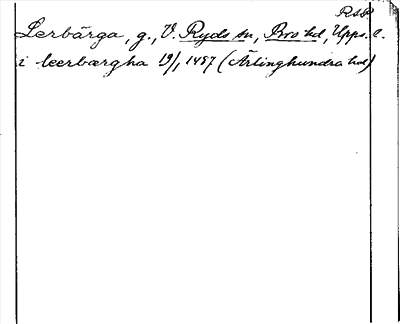 RAP.
Lerbärga, g., V. Ryds sn, Bro hd, Upps. l.
i leerbærgha 19/1 1487 (Ärlinghundra hd)